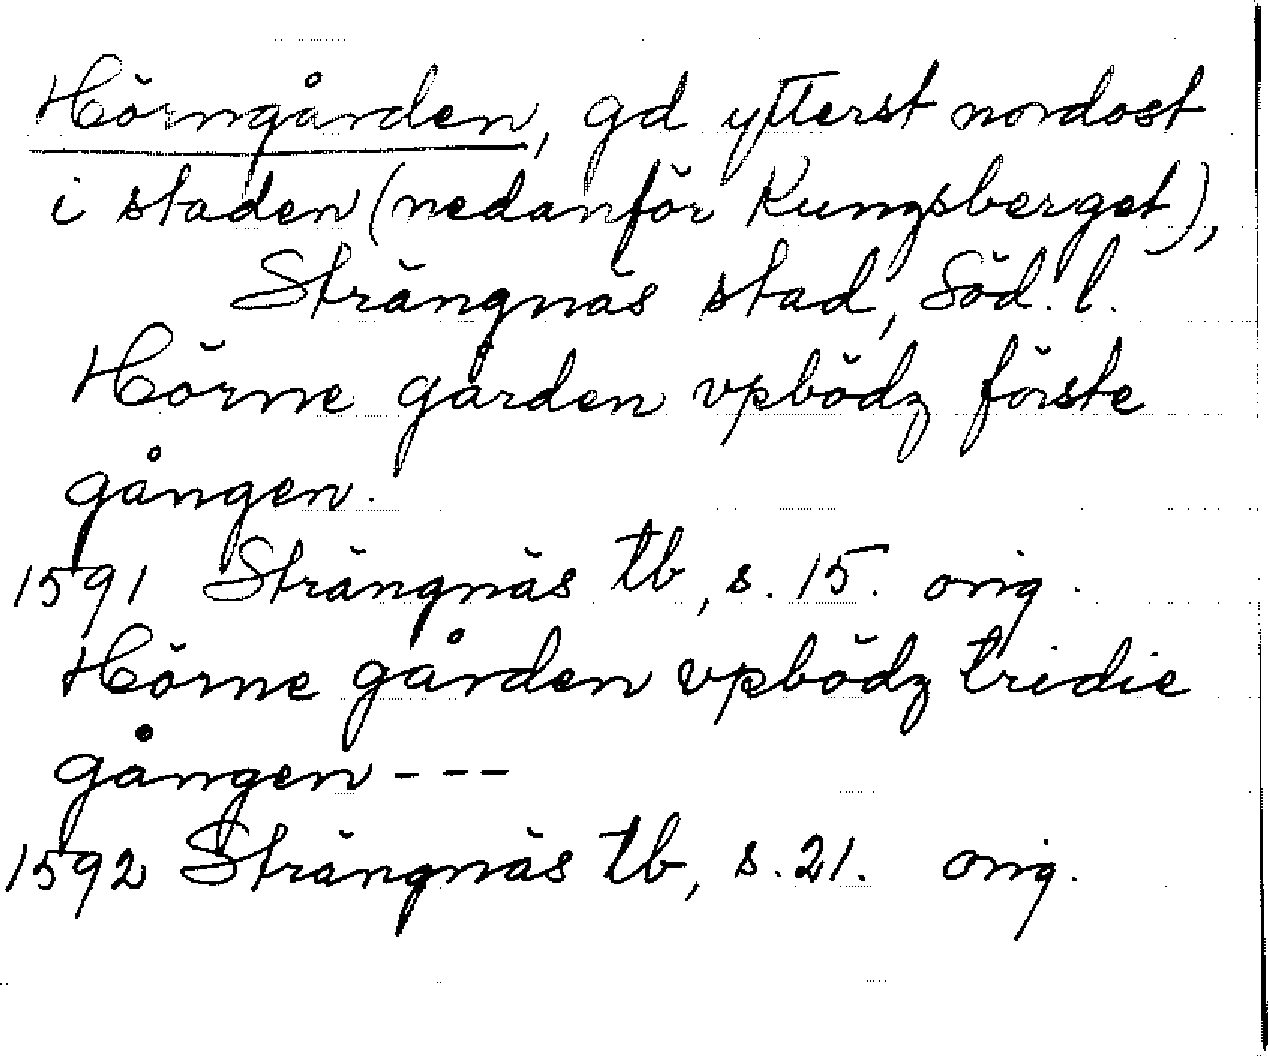 Hörngården, gd ytterst nordost
i staden (nedanför Kungsberget),
Strängnäs stad, Söd. l.
Hörne gården vpbödz förste
gången.
1591 Strängnäs tb, s. 15. orig.
Hörne gården vpbödz tridie
gången ---
1592 Strängnäs tb, s. 21. orig.